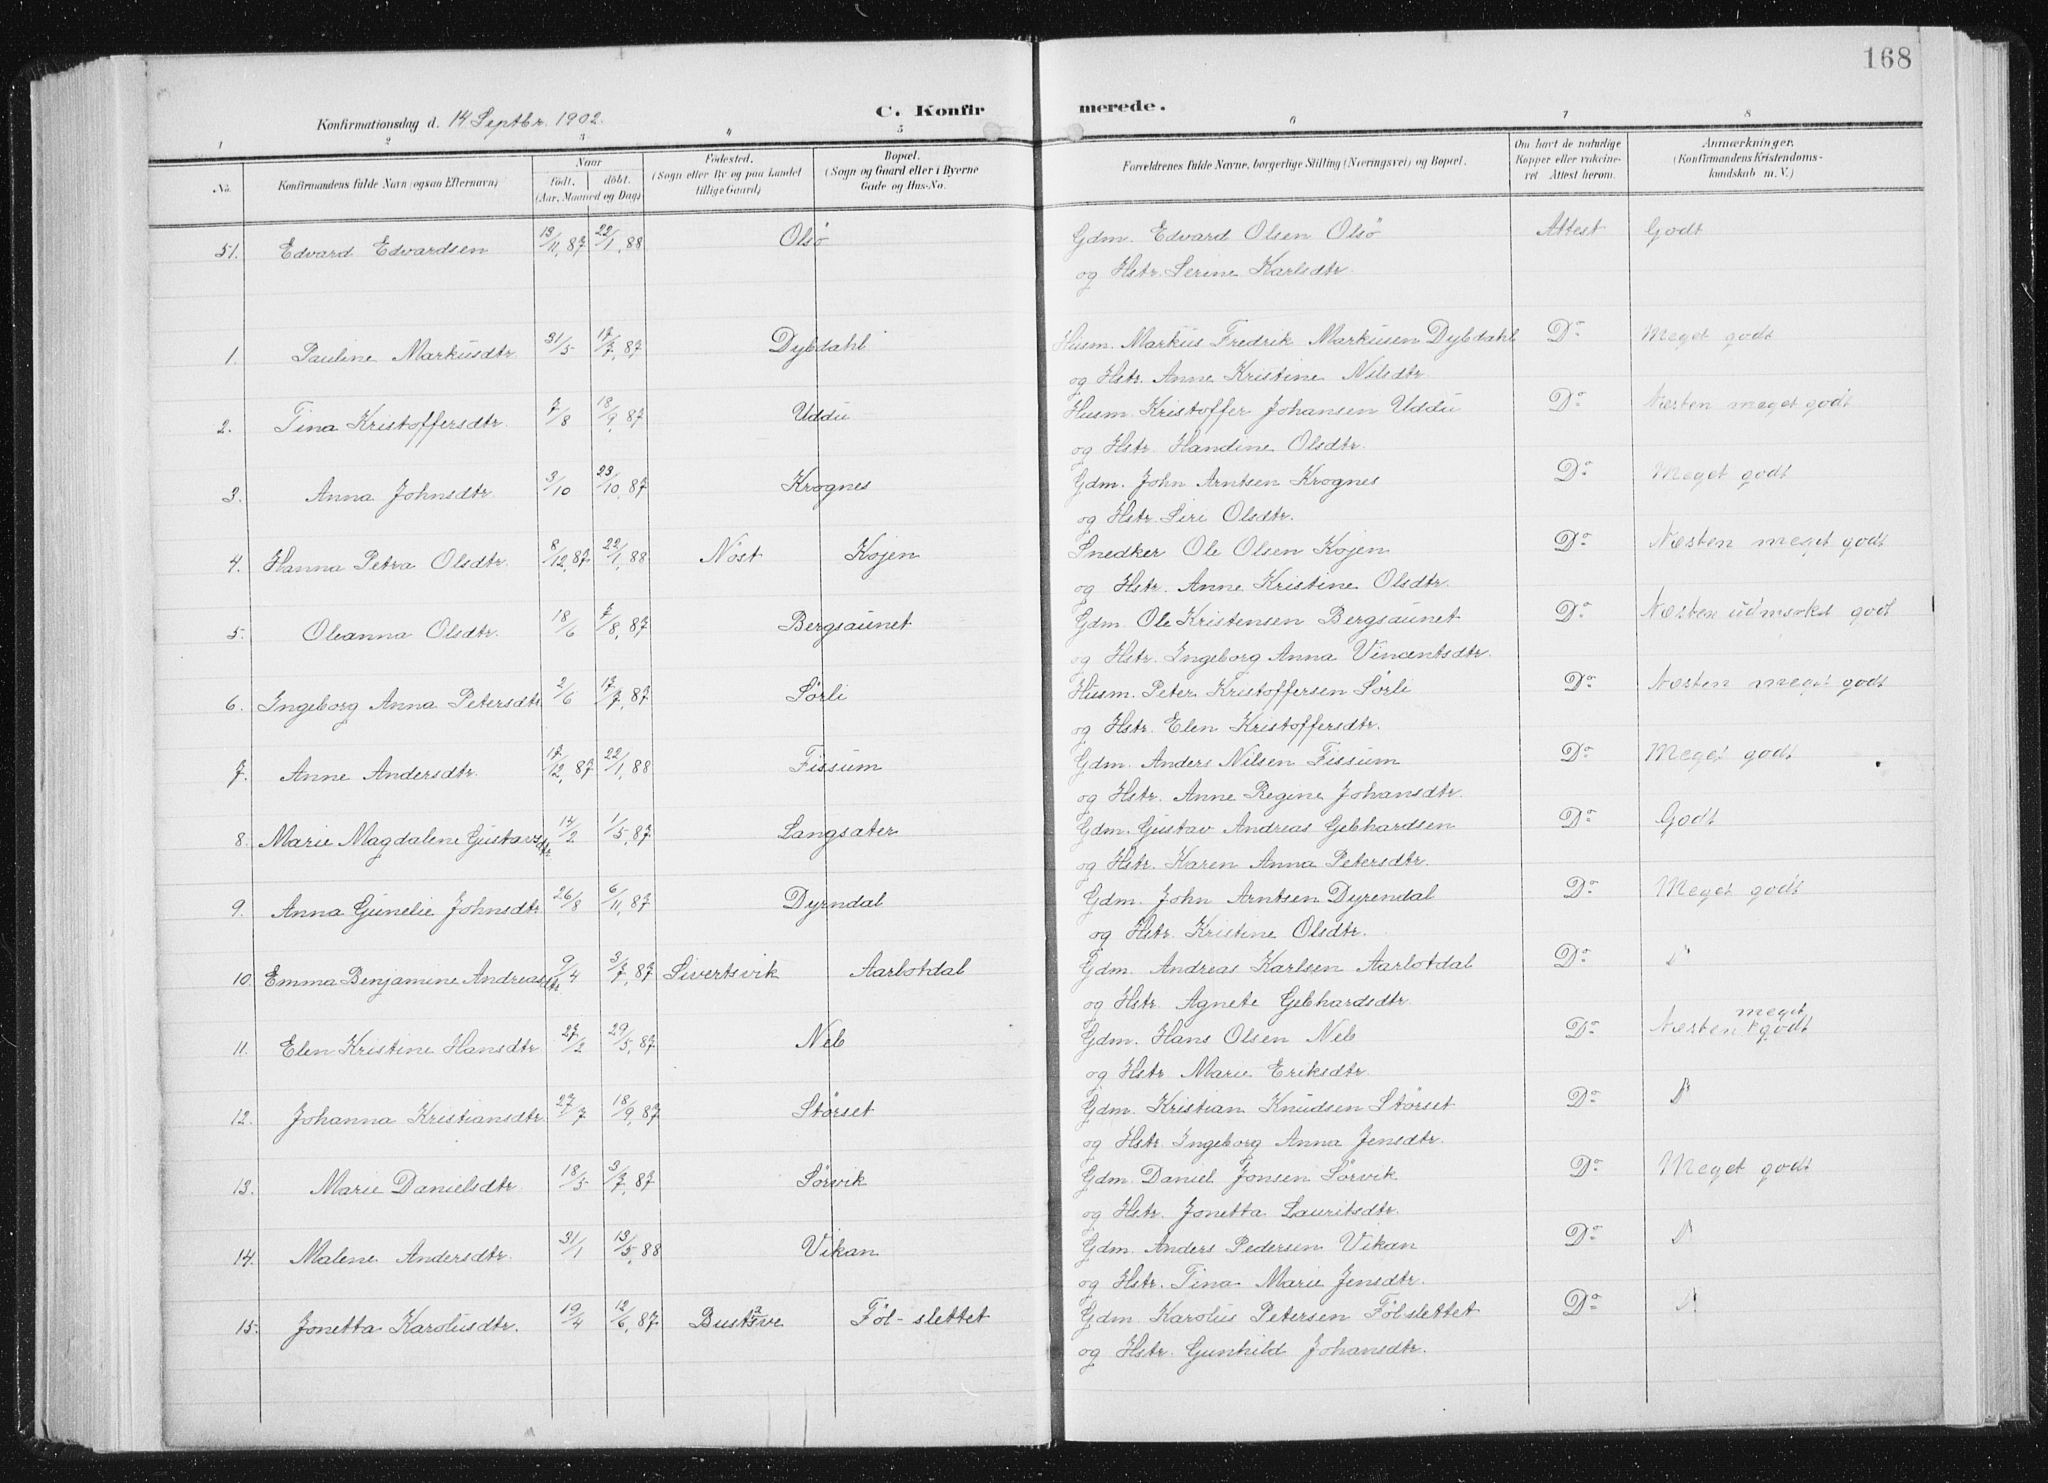 168
C. Konfir merede.
Konfirmationsdag d. 14 Septbr. 1902.
1 2 3 4 5 6 7 8
No. Konfirmandens fulde Navn (ogsaa Efternavn) Naar Født. døbt. (Aar, Maaned og Dag) Fødested. (Sogn eller By og paa Landet tillige Gaard) Bopæl. (Sogn og Gaard eller i Byerne Gade og Hus-No. Forældrenes fulde Navne, borgerlige Stilling (Næringsvei) og Bopæl. Om havt de naturlige Kopper eller vakcineret Attest herom. Anmærkninger. (Konfirmandens Kristendomskundskab m. V.)
51. Edvard Edvardsen 13/11, 87 22/1, 88 Olsö Gdm. Edvard Olsen Olsö Attest Godt
og Hstr. Serine Karlsdtr.
1. Pauline Markusdtr. 31/5 17/7, 87 Dybdahl Husm. Markus Fredrik Markusen Dybdahl Do Meget godt
og Hstr. Anne Kristine Nilsdtr.
2. Tina Kristoffersdtr. 7/8 18/9, 87 Uddu Husm. Kristoffer Johansen Uddu Do Næsten meget godt
og Hstr. Handine Olsdtr.
3. Anna Johnsdtr. 3/10 23/10, 87 Krognes Gdm. John Arntsen Krognes Do Meget godt
og Hstr. Siri Olsdtr.
4. Hanna Petra Olsdtr. 8/12, 87 22/1, 88 Nöst Kojen Snedker Ole Olsen Kojen Do Næsten meget godt
og Hstr. Anne Kristine Olsdtr.
5. Oleanna Olsdtr. 18/6 7/8, 87 Bergsaunet Gdm. Ole Kristensen Bergsaunet Do Næsten udmærket godt
og Hstr. Ingeborg Anna Vincentsdtr.
6. Ingeborg Anna Petersdtr. 2/6 17/7, 87 Sörli Husm. Peter Kristoffersen Sörli Do Næsten meget godt
og Hstr. Elen Kristoffersdtr.
7. Anne Andersdtr. 17/12, 87 22/1, 88 Fissum Gdm. Anders Nilsen Fissum Do Meget godt
og Hstr. Anne Regine Johansdtr.
8. Marie Magdalene Gustavsdtr 14/2 1/5, 87 Langsater Gdm. Gustav Andreas Gebhardsen Do Godt
og Hstr. Karen Anna Petersdtr.
9. Anna Gunelie Johnsdtr. 26/8 6/11, 87 Dyrndal Gdm. John Arntsen Dyrendal Do Meget godt
og Hstr. Kristine Olsdtr.
10. Emma Benjamine Andreasdtr. 9/4 3/7, 87 Sivertsvik Aarlotdal Gdm. Andreas Karlsen Aarlotdal Do
og Hstr. Agnete Gebhardsdtr.
11. Elen Kristine Hansdtr. 27/2 29/5, 87 Neb Gdm. Hans Olsen Neb Do Næsten meget godt
og Hstr Marie Eriksdtr.
12. Johanna Kristiansdtr. 27/7 18/9, 87 Störset Gdm. Kristian Knudsen Störset Do
og Hstr. Ingeborg Anna Jensdtr.
13. Marie Danielsdtr. 18/5 3/7, 87 Sörvik Gdm. Daniel Jonsen Sörvik Do Meget godt
og Hstr. Jonetta Lauritsdtr.
14. Malene Andersdtr. 31/1 13/5, 88 Vikan Gdm. Anders Pedersen Vikan Do
og Hstr. Tina Marie Jensdtr.
15. Jonetta Karolusdtr. 19/4 12/6, 87 Föl-slettet Gdm Karolus Petersen Fölslettet Do
og Hstr. Gunhild Johansdtr.